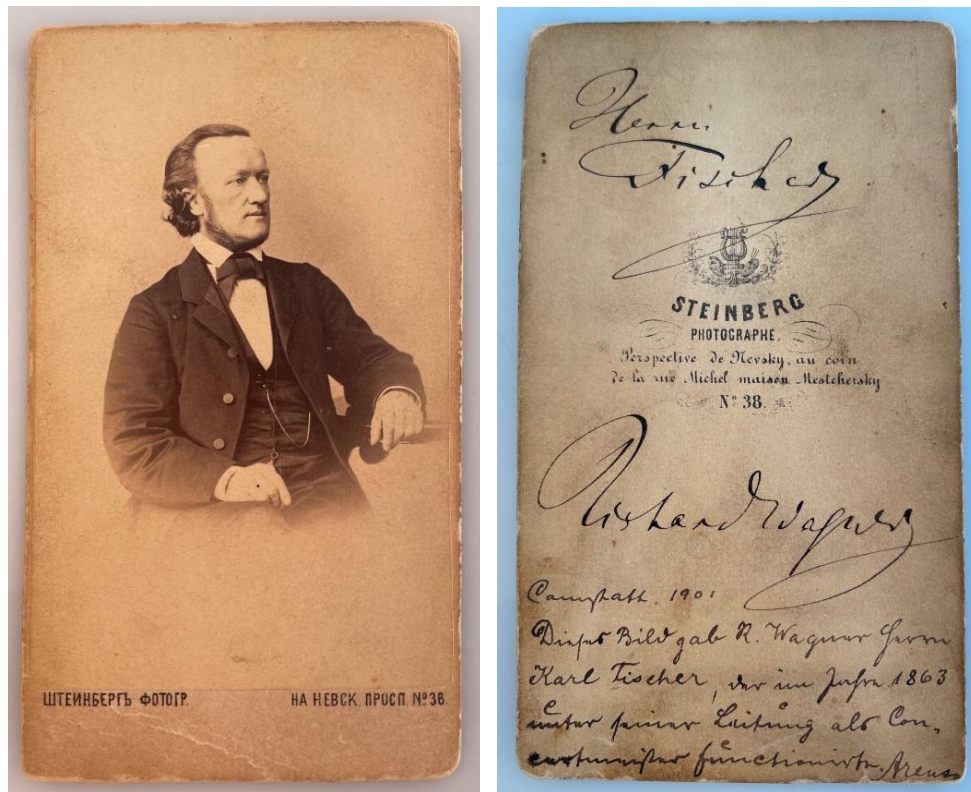 ШТЕЙНБЕРГЪ ФОТОГР.
НА НЕВСК. ПРОСП. №38.
Herrn
Fischer
STEINBERG
PHOTOGRAPHE.
Perspective de Nevsky, au coin
de la rue Michel maison Mestchersky
Nº 38.
Richard Wagner
Cannstatt. 1901
Dieses Bild gab R. Wagner Herrn
Karl Fischer, der im Jahre 1863
unter seiner Leitung als Con-
certmeister functionirte.